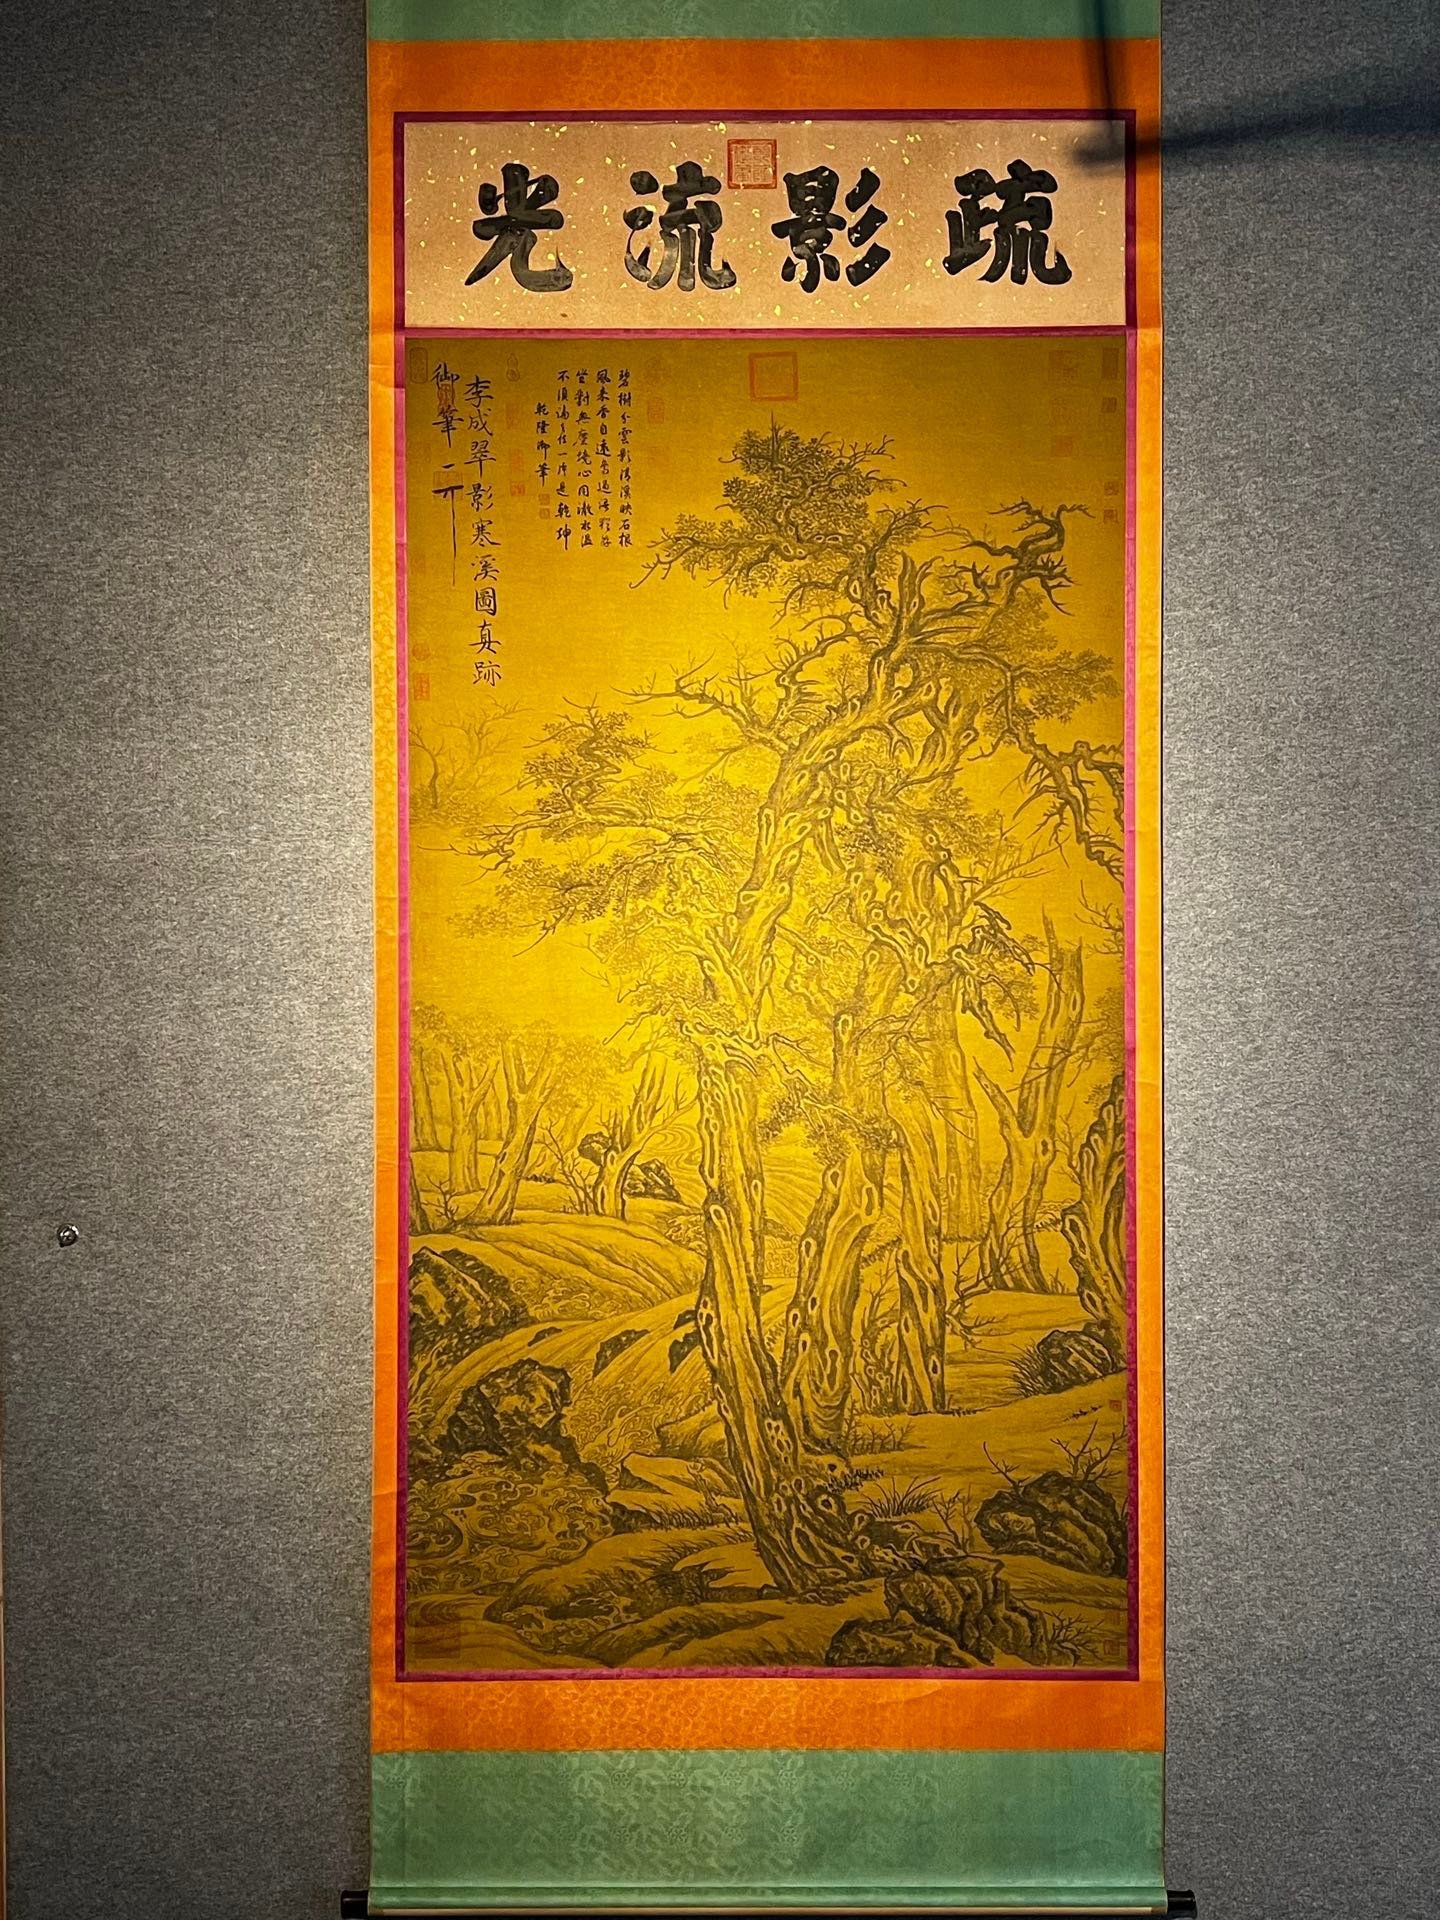 疏影流光
碧樹分雲影清溪映石根
風來香自遠鳥過語猶存
坐對無塵境心同澈水溫
不須一片是乾坤
乾隆御筆
李成翠影寒溪圖真跡
御筆